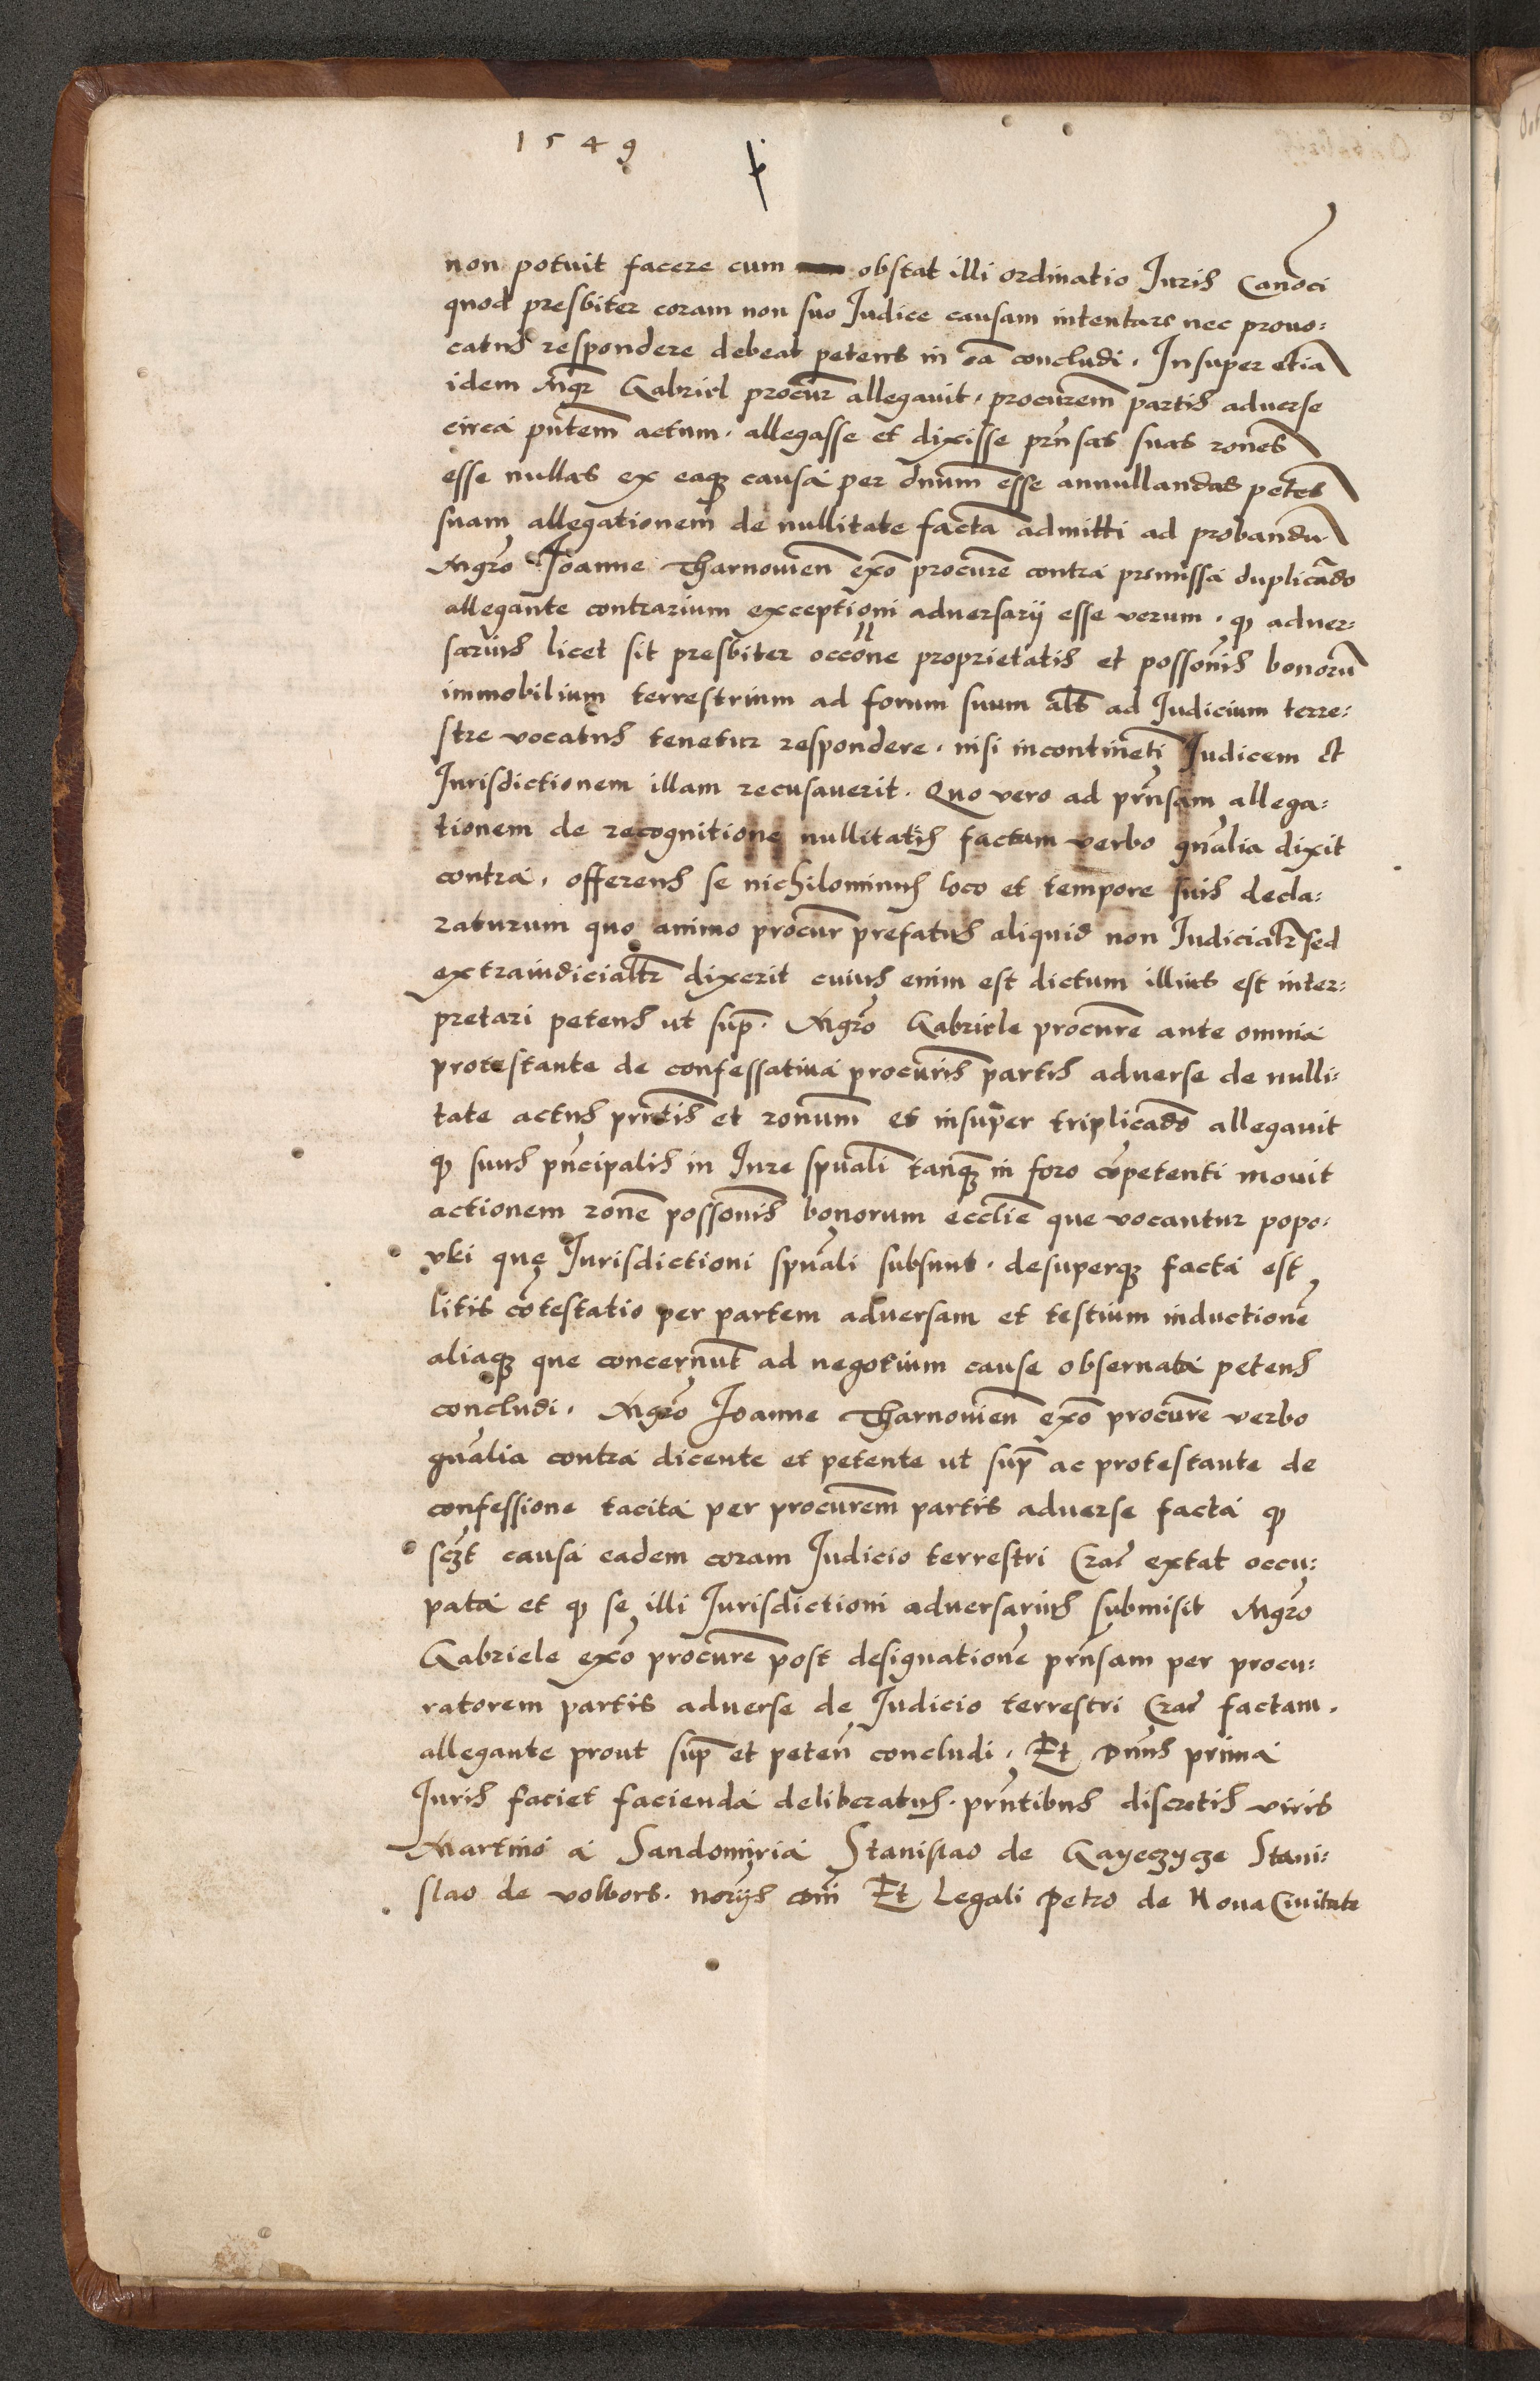 1549
non potuit facere cum obstat illi ordinatio Juris Canoci
quod presbiter coram non suo Judice causam intentare nec provo:
catus respondere debeat petens in ea concludi. Insuper etia
idem Mgr Gabriel procur allegavit, procurem partis adverse
circa pntem actum. allegasse et dixisse prnsas suas rones
esse nullas ex eaq causa per dnum esse annullandas petes
suam allegationem de nullitate facta admitti ad probandu
Mgro Joanne Tharnovien exo procure contra premissa duplicado
allegante contrarium exceptioni adversarij esse verum. q adver:
sarius licet sit presbiter occone proprietatis et possonis bonoru
immobilium terrestrium ad forum suum als ad Judicium terre:
stre vocatus tenetur respondere. nisi incontineti Judicem et
Jurisdictionem illam recusaverit. Quo vero ad prnsam allega:
tionem de recognitione nullitatis factam verbo gnalia dixit
contra. offerens se nichilominus loco et tempore suis decla:
raturum quo animo procur prefatus aliquid non Judicialr sed
extraiudicialtr dixerit cuius enim est dictum illius est inter:
pretari petens ut sup. Mgro Gabriele procure ante omnia
protestante de confessativa procuris partis adverse de nulli:
tate actus prntis et ronum et insuper triplicado allegavit
q suus pncipalis in Jure spuali tanq in foro competenti movit
actionem rone possonis bonorum ecclie que vocantur popo:
vki que Jurisdictioni spuali subsunt. desuperq facta est
litis cotestatio per partem adversam et testium inductione
aliaq que concernut ad negotium cause observata petens
concludi. Mgro Joanne Tharnovien exo procure verbo
gnalia contra dicente et petente ut sup ac protestante de
confessione tacita per procurem partis adverse facta q
sczt causa eadem coram Judicio terrestri Crac extat occu:
pata et q se illi Jurisdictioni adversarius submisit Mgro
Gabriele exo procure post designatione prnsam per procu:
ratorem partis adverse de Judicio terrestri Crac factam.
allegante prout sup et peten concludi. Et Dnus prima
Juris faciet facienda deliberatus. prntibus discretis viris
Martino a Sandomiria Stanislao de Gayczycze Stani:
slao de volbors. norijs Et Legali Petro de Nova Civitate